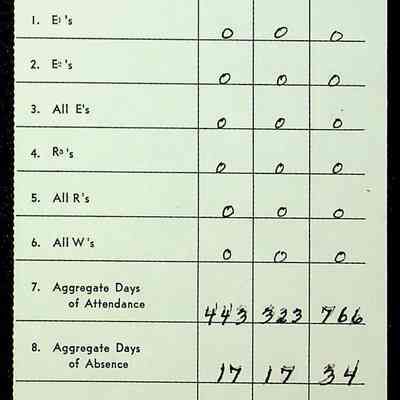 1. E¹'s 0 0 0
2. E²'s 0 0 0
3. All E's 0 0 0
4. R³'s 0 0 0
5. All R's 0 0 0
6. All W's 0 0 0
7. Aggregate Days
of Attendance 443 323 766
8. Aggregate Days
of Absence 17 17 34